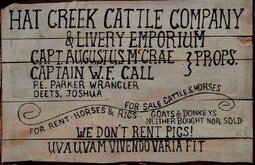 HAT CREEK CATTLE COMPANY
& LIVERY EMPORIUM
CAPT. AUGUSTUS McCRAE } PROPS.
CAPTAIN W. F. CALL
P.E. PARKER WRANGLER
DEETS, JOSHUA
FOR SALE CATTLE & HORSES
FOR RENT-HORSES & RIGS
GOATS & DONKEYS
NEITHER BOUGHT NOR SOLD
WE DON'T RENT PIGS!
UVA UVAM VIVENDO VARIA FIT